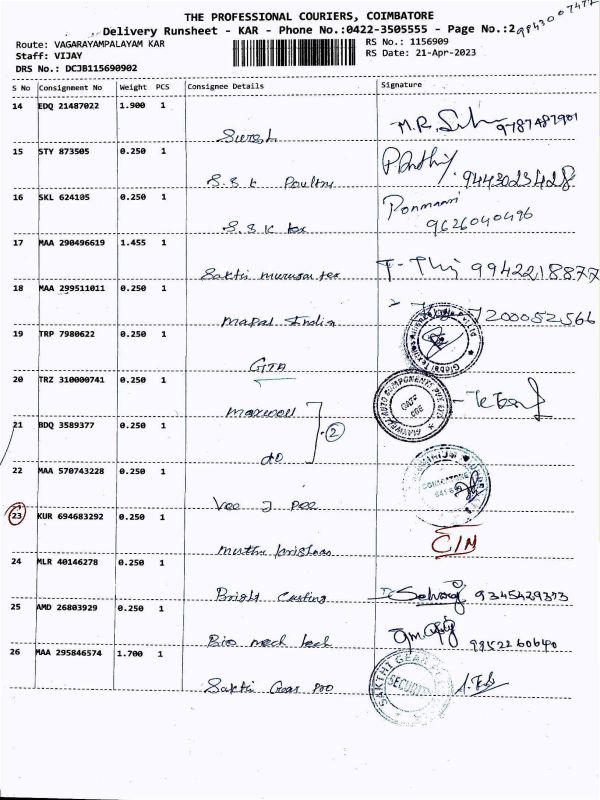 THE PROFESSIONAL COURIERS, COIMBATORE
Delivery Runsheet - KAR - Phone No.:0422-3505555 - Page No.:2
Route: VAGARAYAMPALAYAM KAR
RS No.: 1156909
Staff: VIJAY
RS Date: 21-Apr-2023
DRS No.: DCJB115690902
S No Consignment No Weight PCS Consignee Details Signature
14 EDQ 21487022 1.900 1
Suresh 9787487901
15 STY 873505 0.250 1
S.S.K Poultry 9443023428
16 SKL 624105 0.250 1 Ponmani
S.S.K tex 9626040496
17 MAA 290496619 1.455 1
Sakthi murugan tex 9942218877
18 MAA 299511011 0.250 1
Mapal India 7200052566
19 TRP 7980622 0.250 1
GTA
20 TRZ 310000741 0.250 1
Maxwell
21 BDQ 3589377 0.250 1 2
do
22 MAA 570743228 0.250 1
Vee J Pee
23 KUR 694683292 0.250 1
Muthu krishnan C/N
24 MLR 40146278 0.250 1
Bright Casting Selvaraj 9345429373
25 AMD 26803929 0.250 1
Bio mech tech 9952260640
26 MAA 295846574 1.700 1
Sakthi Gear SAKTHI GEAR SECURITY